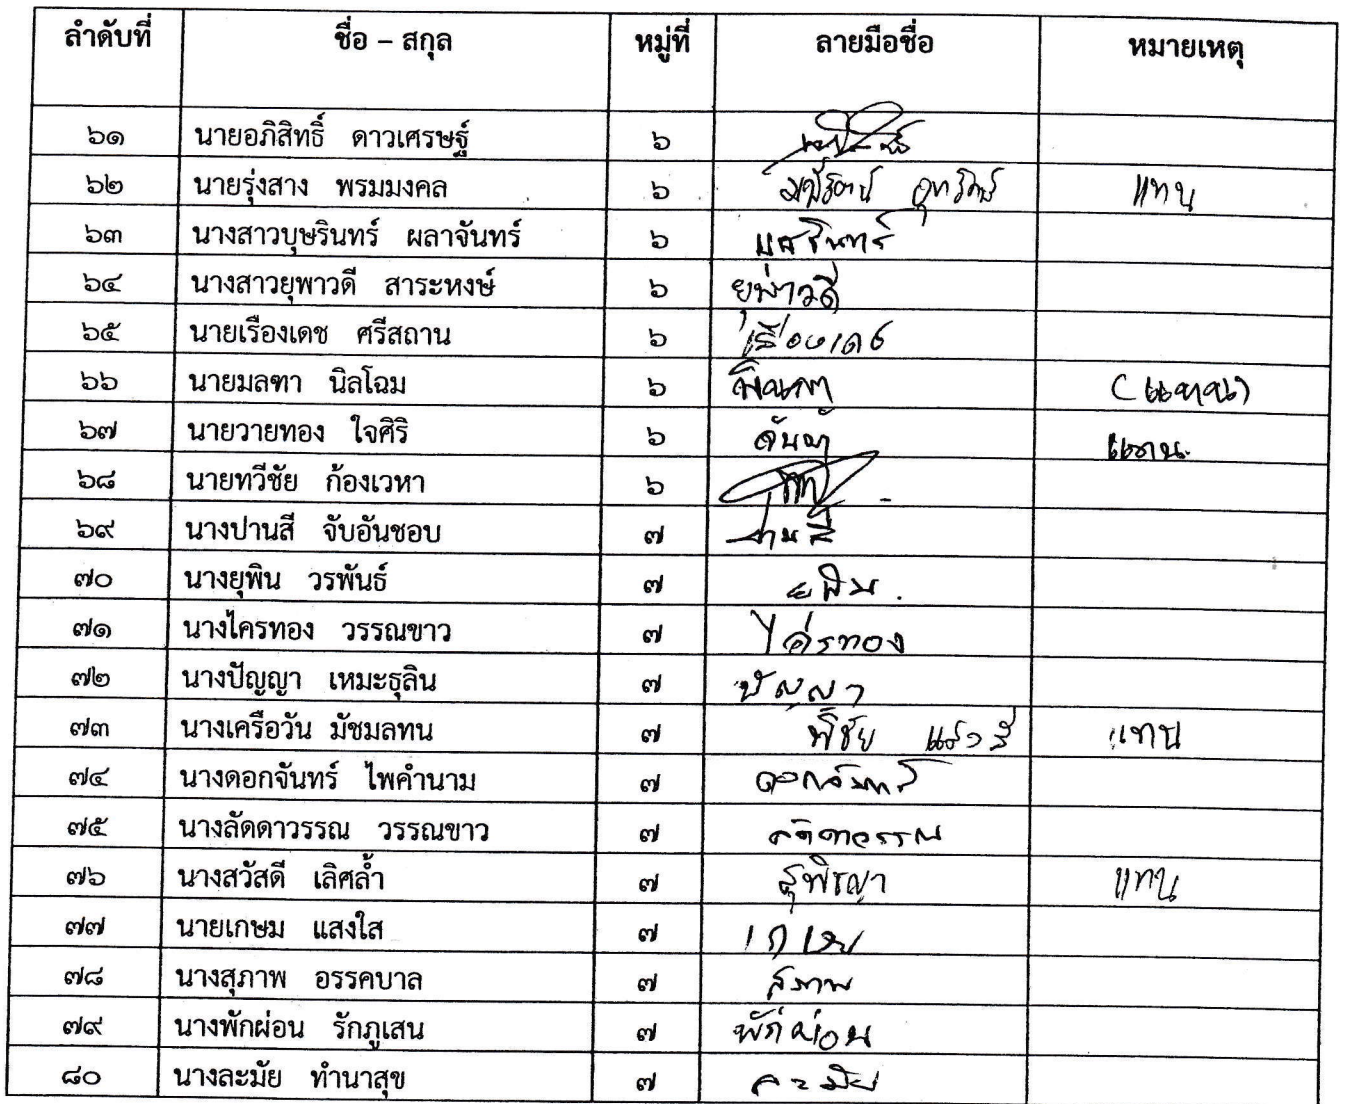 ลำดับที่ ชื่อ – สกุล หมู่ที่ ลายมือชื่อ หมายเหตุ
๖๑ นายอภิสิทธิ์ ดาวเศรษฐ์ ๖
๖๒ นายรุ่งสาง พรมมงคล ๖ แทน
๖๓ นางสาวบุษรินทร์ ผลาจันทร์ ๖
๖๔ นางสาวยุพาวดี สาระหงษ์ ๖ ยุพาวดี
๖๕ นายเรืองเดช ศรีสถาน ๖ เรืองเดช
๖๖ นายมลฑา นิลโฉม ๖ (แทน)
๖๗ นายวายทอง ใจศิริ ๖ แทน
๖๘ นายทวีชัย ก้องเวหา ๖
๖๙ นางปานสี จับอันชอบ ๗ ปานสี
๗๐ นางยุพิน วรพันธ์ ๗ ยุพิน
๗๑ นางไครทอง วรรณขาว ๗ ไครทอง
๗๒ นางปัญญา เหมะธุลิน ๗ ปัญญา
๗๓ นางเครือวัน มัชมลทน ๗ พิชัย แทน
๗๔ นางดอกจันทร์ ไพคำนาม ๗ ดอกจันทร์
๗๕ นางลัดดาวรรณ วรรณขาว ๗ ลัดดาวรรณ
๗๖ นางสวัสดี เลิศล้ำ ๗ สุพิชญา แทน
๗๗ นายเกษม แสงใส ๗ เกษม
๗๘ นางสุภาพ อรรคบาล ๗ สุภาพ
๗๙ นางพักผ่อน รักภูเสน ๗ พักผ่อน
๘๐ นางละมัย ทำนาสุข ๗ ละมัย